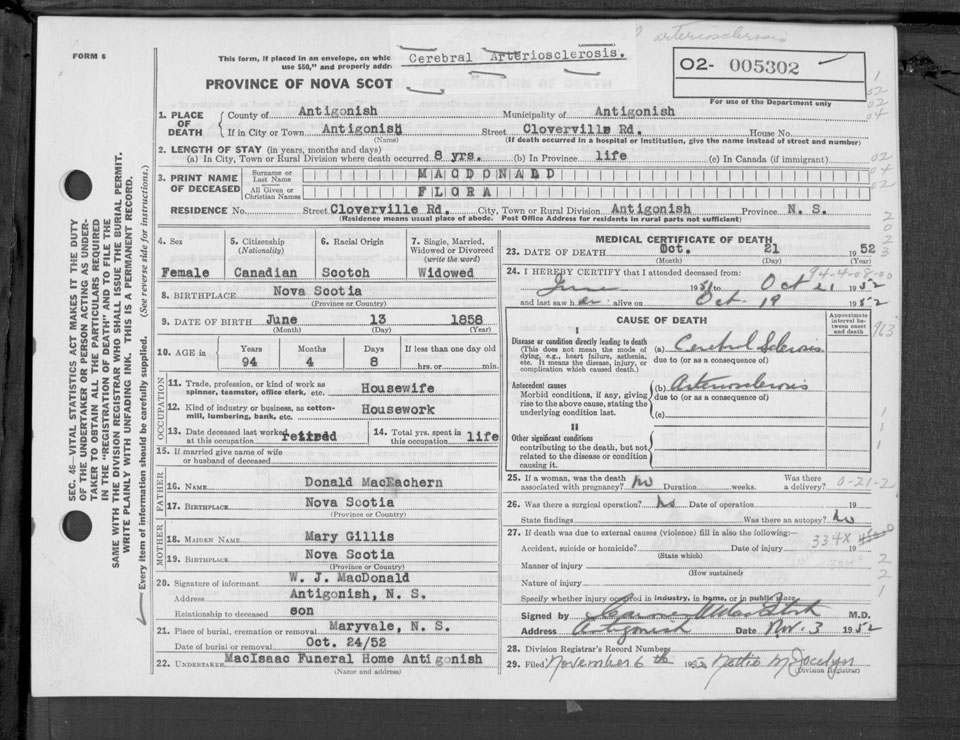 arteriosclerosis
FORM 6
This form, if placed in an envelope, on whic
use $50," and properly addr
Cerebral Arteriosclerosis.
O2- 005302
For use of the Department only
PROVINCE OF NOVA SCOT
1. PLACE OF DEATH
County of Antigonish Municipality of Antigonish
If in City or Town Antigonish Street Cloverville Rd. House No.
(Name) (If death occurred in a hospital or institution, give the name instead of street and number)
2. LENGTH OF STAY (in years, months and days)
(a) In City, Town or Rural Division where death occurred 8 yrs. (b) In Province life (c) In Canada (if immigrant)
3. PRINT NAME OF DECEASED
Surname or Last Name MACDONALD
All Given or Christian Names FLORA
RESIDENCE No. Street Cloverville Rd. City, Town or Rural Division Antigonish Province N. S.
(Residence means usual place of abode. Post Office Address for residents in rural parts not sufficient)
4. Sex
Female
5. Citizenship
(Nationality)
Canadian
6. Racial Origin
Scotch
7. Single, Married, Widowed or Divorced
(write the word)
Widowed
8. BIRTHPLACE Nova Scotia
(Province or Country)
9. DATE OF BIRTH June 13 1858
(Month) (Day) (Year)
10. AGE in
Years Months Days If less than one day old
94 4 8 hrs. or min.
OCCUPATION
11. Trade, profession, or kind of work as spinner, teamster, office clerk, etc. Housewife
12. Kind of industry or business, as cotton-mill, lumbering, bank, etc. Housework
13. Date deceased last worked at this occupation retired
14. Total yrs. spent in this occupation life
15. If married give name of wife or husband of deceased
FATHER
16. NAME Donald MacEachern
17. BIRTHPLACE Nova Scotia
(Province or Country)
MOTHER
18. MAIDEN NAME Mary Gillis
19. BIRTHPLACE Nova Scotia
(Province or Country)
20. Signature of informant W. J. MacDonald
Address Antigonish, N. S.
Relationship to deceased son
21. Place of burial, cremation or removal Maryvale, N. S.
Date of burial or removal Oct. 24/52
22. UNDERTAKER MacIsaac Funeral Home Antigonish
(Name and address)
MEDICAL CERTIFICATE OF DEATH
23. DATE OF DEATH Oct. 21 1952
(Month) (Day) (Year)
24. I HEREBY CERTIFY that I attended deceased from:
June 1951 to Oct 21 1952
and last saw her alive on Oct. 19 1952
CAUSE OF DEATH
Approximate interval between onset and death
I
Disease or condition directly leading to death
(This does not mean the mode of dying, e.g., heart failure, asthenia, etc. It means the disease, injury, or complication which caused death.)
(a) Cerebral Sclerosis
due to (or as a consequence of)
Antecedent causes
Morbid conditions, if any, giving rise to the above cause, stating the underlying condition last.
(b) Arteriosclerosis
due to (or as a consequence of)
(c)
II
Other significant conditions
contributing to the death, but not related to the disease or condition causing it.
25. If a woman, was the death associated with pregnancy? No Duration weeks. Was there a delivery?
0-21-2
26. Was there a surgical operation? No Date of operation 19
State findings Was there an autopsy? No
27. If death was due to external causes (violence) fill in also the following:—
334X
Accident, suicide or homicide? Date of injury 19
(State which)
Manner of injury
(How sustained)
Nature of injury
Specify whether injury occurred in industry, in home, or in public place
Signed by M.D.
Address Antigonish Date Nov. 3 1952
28. Division Registrar's Record Number
29. Filed November 6th 1952 Nettie M Jocelyn
(Division Registrar)
SEC. 46—VITAL STATISTICS ACT MAKES IT THE DUTY
OF THE UNDERTAKER OR PERSON ACTING AS UNDER-
TAKER TO OBTAIN ALL THE PARTICULARS REQUIRED
IN THE "REGISTRATION OF DEATH" AND TO FILE THE
SAME WITH THE DIVISION REGISTRAR WHO SHALL ISSUE THE BURIAL PERMIT.
WRITE PLAINLY WITH UNFADING INK. THIS IS A PERMANENT RECORD.
Every item of information should be carefully supplied. (See reverse side for instructions.)